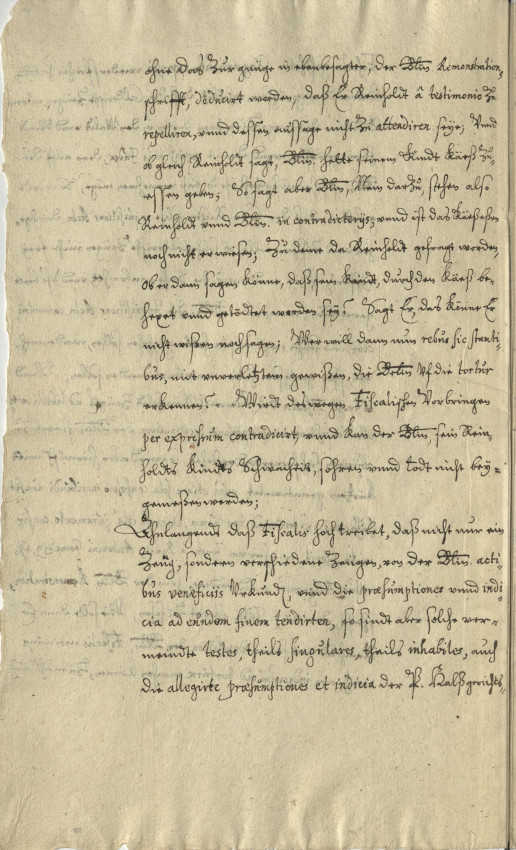 ohne das zur gnüge in ebenbesagter, der Bltin Remonstration
schrifft, deducirt worden, daß Er Reinholdt â testimonio zu
repelliren, vnnd dessen aussage nicht zu attendiren seye; Vnnd
ob gleich Reinholdt sagt, Bltin hette seinem Kindt Käeß zu
essen geben; So sagt aber Bltin, Nein darzu, stehen also
Reinholdt vnnd Bltin in contradictorijs; vnnd ist das Käeßeßen
noch nicht erwiesen; Zu deme da Reinholdt gefragt worden,
ob er dann sagen könne, daß sein Kindt, durch den Käeß be-
hexet vnnd getödtet worden sey? Sagt Er, das könne Er
nicht wißen noch sagen; Wer will dann nun rebus sic stanti-
bus, mit vnverletztem gewißen, die Bltin vf die tortur
erkennen? Wirdt deswegen Fiscalischen Vorbringen
per expressum contradicirt, vnnd kan der Bltin, sein Rein-
holdts Kindts Schwacheit, vnnd todt nicht bey-
gemeßen werden;
Ahnlangendt daß Fiscalis hoch treibet, daß nicht nur ein
Zeüg, sonderen verschiedene Zeügen, von der Bltin acti-
bus veneficijs Vrkundt, vnnd die præsumptiones vnnd indi-
cia ad eundem finem tendirten, so sindt aber solche ver-
meindte testes, theils singulares, theils inhabiles, auch
die allegirte præsumptiones et indicia der P. Halßgerichts-